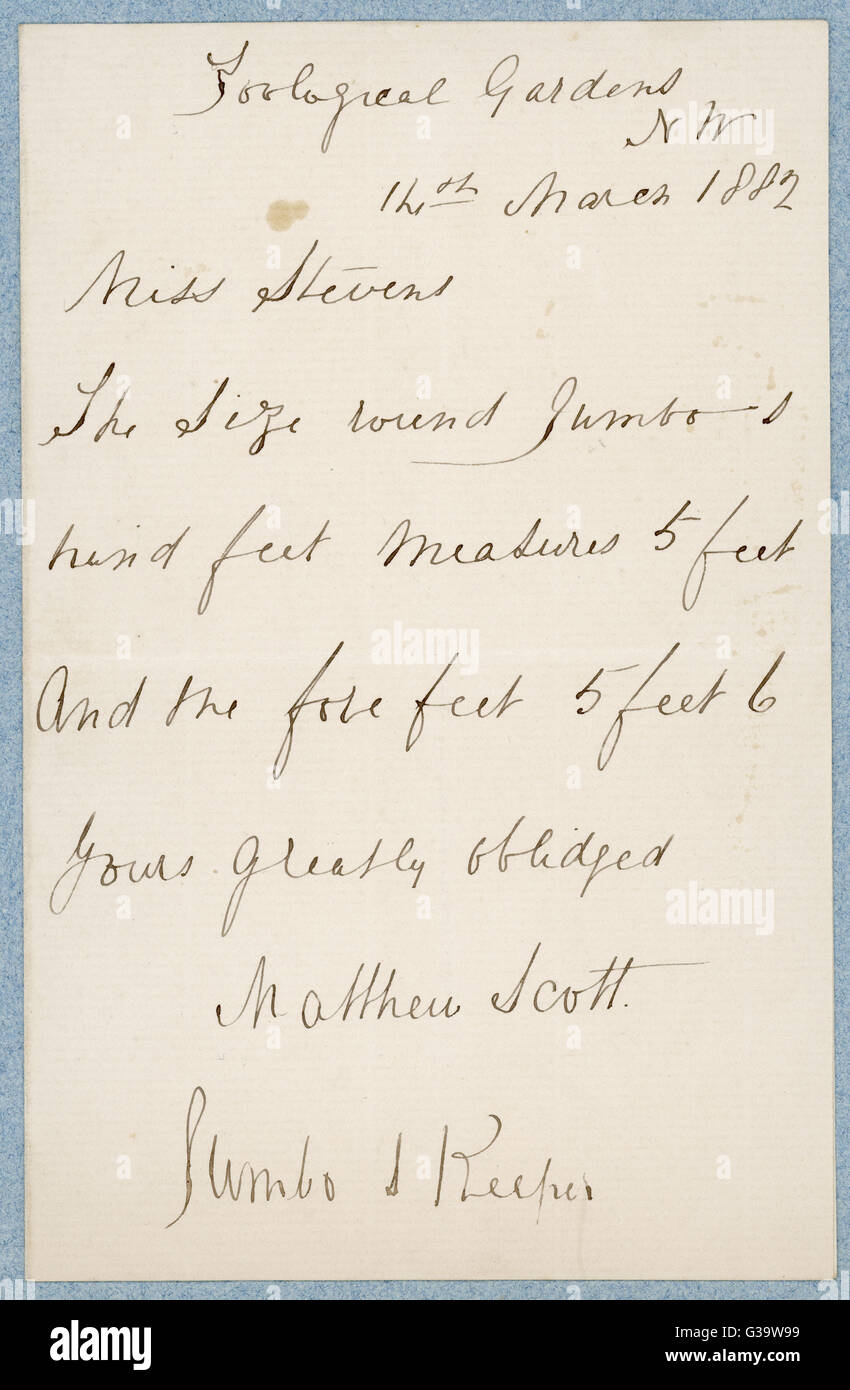 Zoological Gardens
N W
14th March 1882
Miss Stevens
The Size round Jumbo s
hind feet Measures 5 feet
And the fore feet 5 feet 6
Yours greatly oblidged
Matthew Scott.
Jumbo s Keeper
alamy
alamy stock photo
G39W99
www.alamy.com